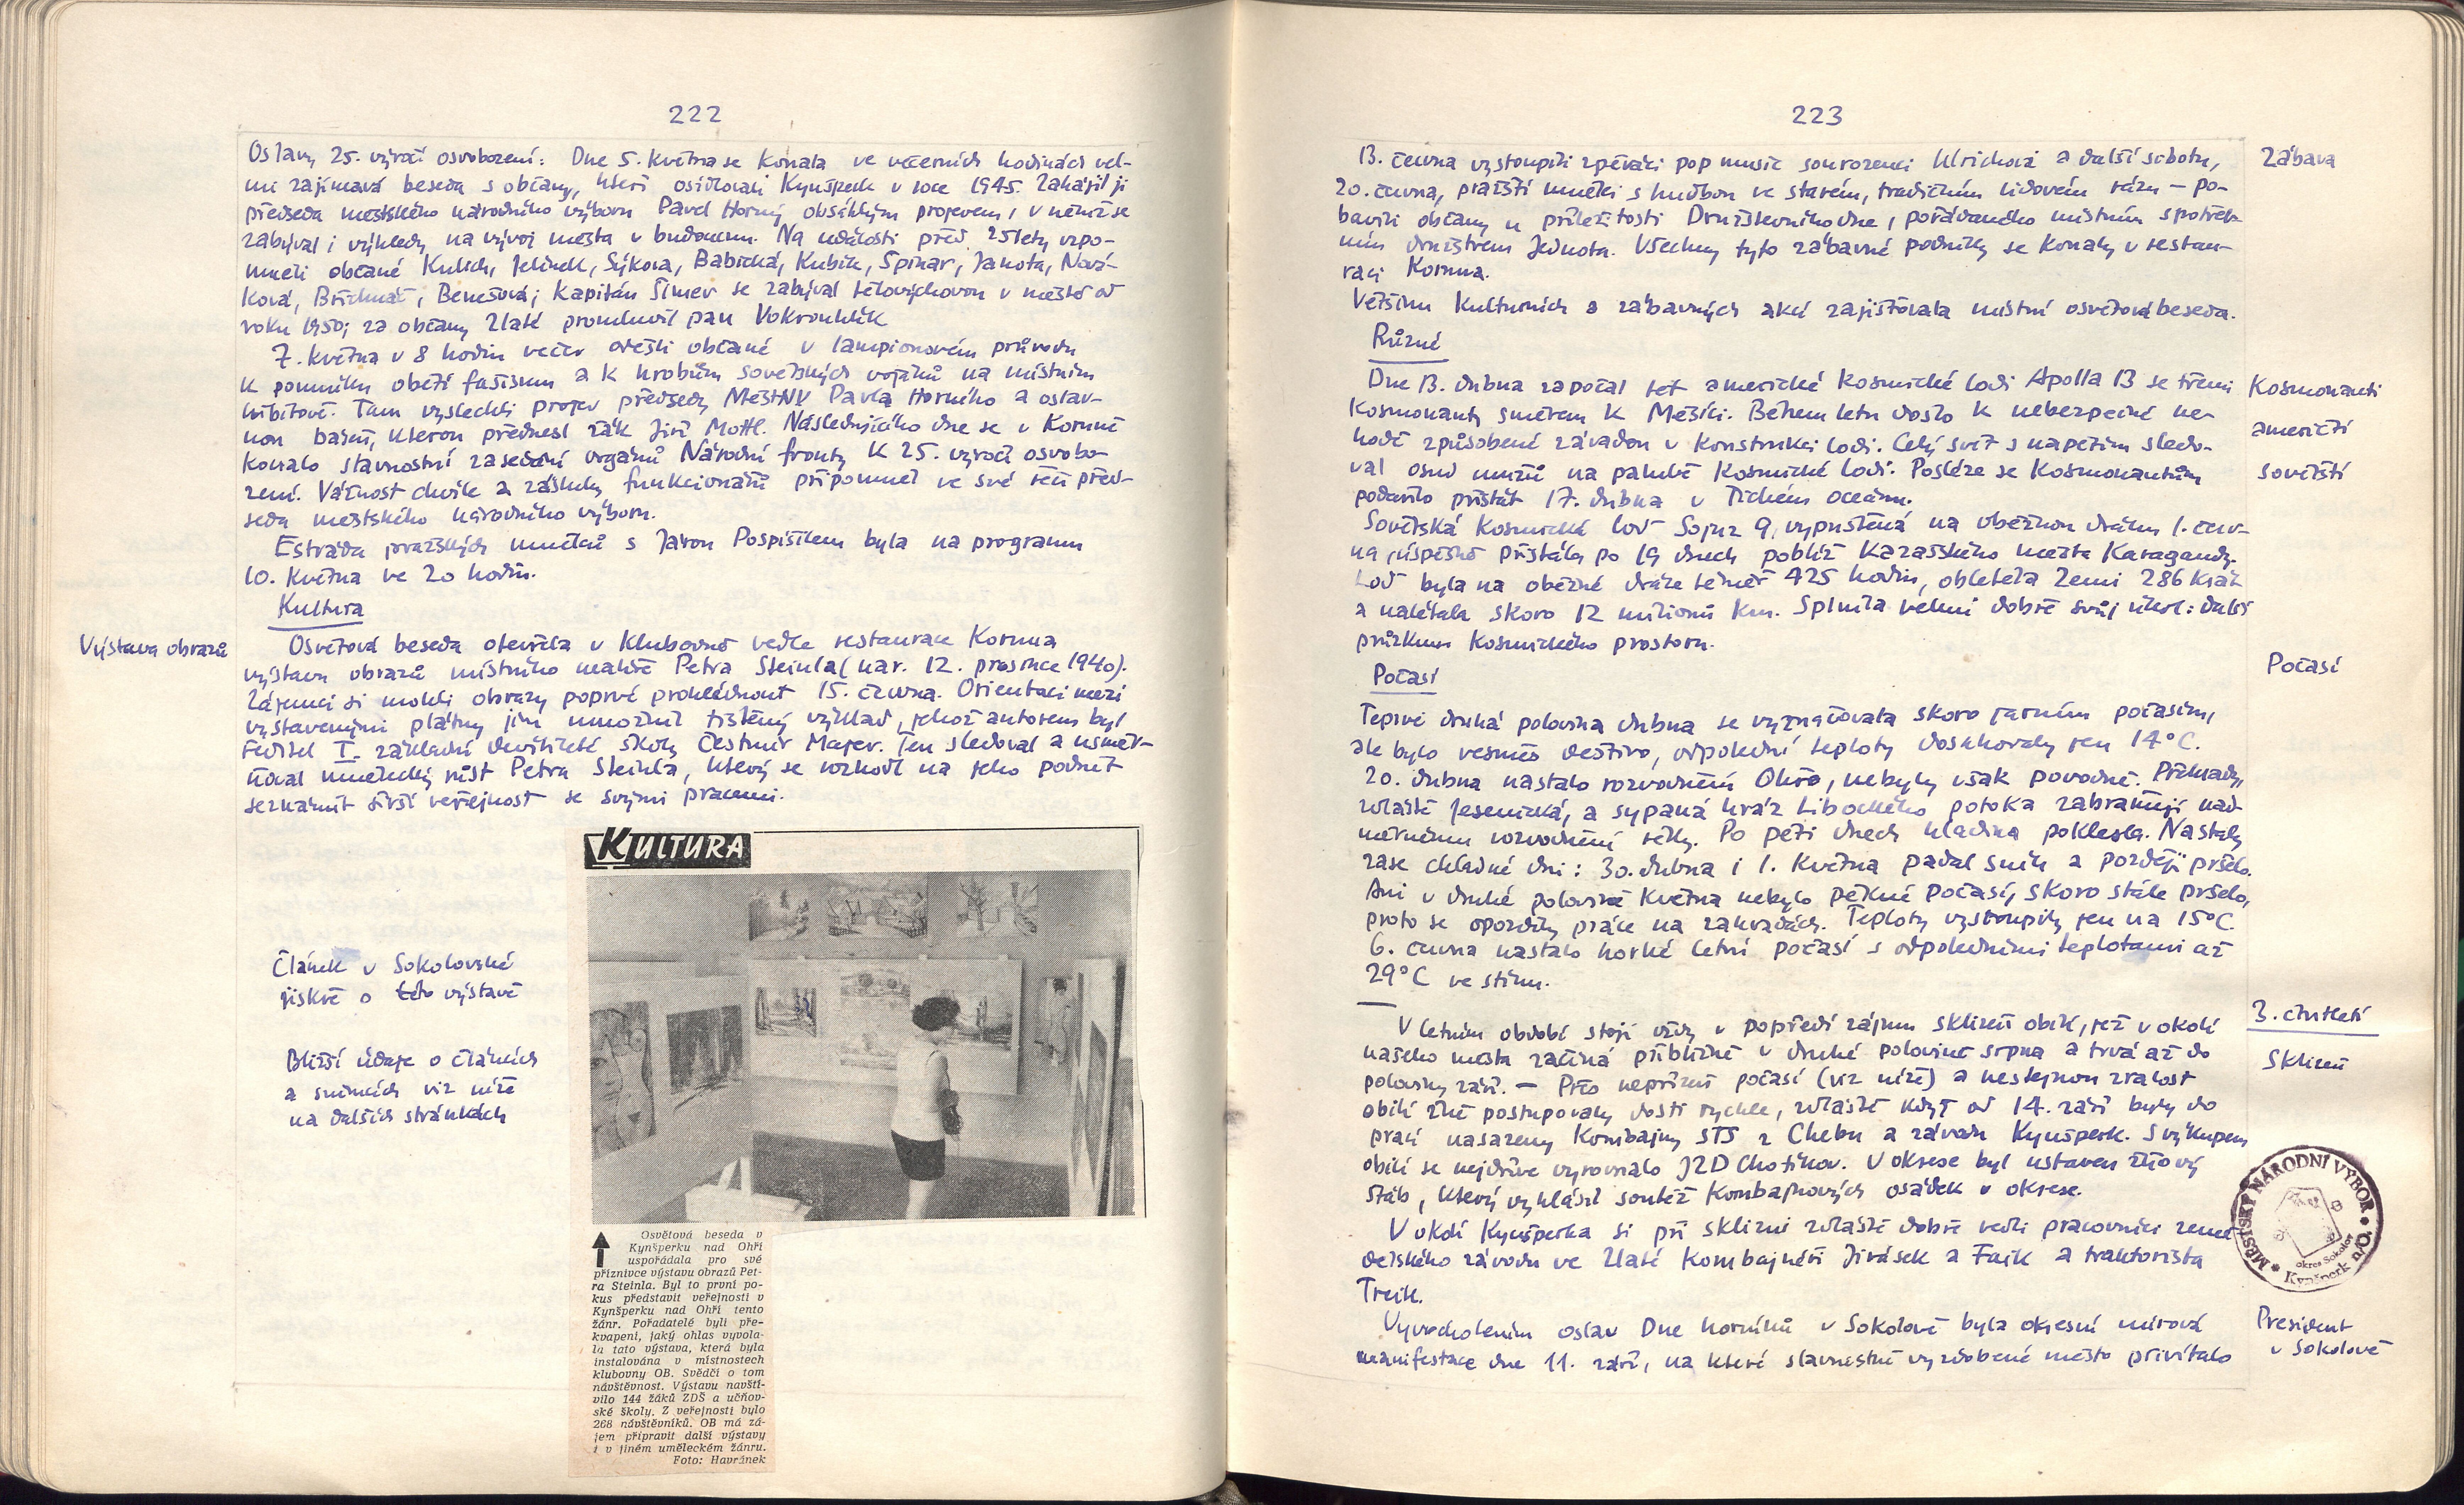 222
Oslavy 25. výročí osvobození: Dne 5. května se konala ve večerních hodinách vel-
mi zajímavá beseda s občany, kteří osídlovali Kynšperk v roce 1945. Zahájil ji
předseda městského národního výboru Pavel Horný obsáhlým projevem, v němž se
zabýval i výhledy na vývoj města v budoucnu. Na události před 25 lety vzpo-
mněli občané Kulich, Jelínek, Sýkora, Babická, Kubík, Spinar, Janota, Nová-
ková, Břichnáč, Benešová; kapitán Šimev se zabýval tělovýchovou v městě od
roku 1950; za občany Zlaté promluvil pan Vokrouhlík
7. května v 8 hodin večer odešli občané v lampionovém průvodu
k pomníku obětí fašismu a k hrobům sovětských vojáků na místním
hřbitově. Tam vyslechli projev předsedy MěstNV Pavla Horného a oslav-
nou báseň, kterou přednesl žák Jiří Mottl. Následujícího dne se v Koruně
konalo slavnostní zasedání orgánů Národní fronty k 25. výročí osvobo-
zení. Vážnost chvíle a zásluhy funkcionářů připomněl ve své řeči před-
seda městského národního výboru.
Estráda pražských umělců s Járou Pospíšilem byla na programu
10. května ve 20 hodin.
Kultura
Výstava obrazů
Osvětová beseda otevřela v klubovně vedle restaurace Koruna
výstavu obrazů místního malíře Petra Steinla (nar. 12. prosince 1940).
Zájemci si mohli obrazy poprvé prohlédnout 15. června. Orientaci mezi
vystavenými plátny jim umožnil tištěný výklad, jehož autorem byl
ředitel I. základní devítileté školy Čestmír Majer. Ten sledoval a usměr-
ňoval umělecký růst Petra Steinla, který se rozhodl na jeho podnět
seznámit širší veřejnost se svými pracemi.
KULTURA
Článek v Sokolovské
jiskře o této výstavě
Bližší údaje o článcích
a snímcích viz níže
na dalších stránkách
Osvětová beseda v
Kynšperku nad Ohří
uspořádala pro své
příznivce výstavu obrazů Pet-
ra Steinla. Byl to první po-
kus představit veřejnosti v
Kynšperku nad Ohří tento
žánr. Pořadatelé byli pře-
kvapeni, jaký ohlas vyvola-
la tato výstava, která byla
instalována v místnostech
klubovny OB. Svědčí o tom
návštěvnost. Výstavu navští-
vilo 144 žáků ZDŠ a učňov-
ské školy. Z veřejnosti bylo
268 návštěvníků. OB má zá-
jem připravit další výstavy
i v jiném uměleckém žánru.
Foto: Havránek
223
13. června vystoupili zpěváci pop music sourozenci Ulrichovi a další sobotu,
20. června, pražští umělci s hudbou ve starém, tradičním lidovém rázu — po-
bavili občany u příležitosti Družstevního dne, pořádaného místním spotřeb-
ním družstvem Jednota. Všechny tyto zábavné podniky se konaly v restau-
raci Koruna.
Většinu kulturních a zábavných akcí zajišťovala místní osvětová beseda.
Zábava
Různé
Dne 13. dubna započal let americké kosmické lodi Apolla 13 se třemi
kosmonauty směrem k Měsíci. Během letu došlo k nebezpečné ne-
hodě způsobené závadou v konstrukci lodi. Celý svět s napětím sledo-
val osud mužů na palubě kosmické lodi. Posléze se kosmonautům
podařilo přistát 17. dubna v Tichém oceánu.
Sovětská kosmická loď Sojuz 9, vypuštěná na oběžnou dráhu 1. červ-
na, úspěšně přistála po 19 dnech poblíž kazašského města Karagandy.
Loď byla na oběžné dráze téměř 425 hodin, obletěla Zemi 286 krát
a nalétala skoro 12 milionů km. Splnila velmi dobře svůj úkol: další
průzkum kosmického prostoru.
Kosmonauti
američtí
sovětští
Počasí
Počasí
Teprve druhá polovina dubna se vyznačovala skoro jarním počasím,
ale bylo vesměs deštivo, odpolední teploty dosahovaly jen 14°C.
20. dubna nastalo rozvodnění Ohře, nebyly však povodně. Přehrady,
zvláště Jesenická, a sypaná hráz Libockého potoka zabraňují nad-
měrnému rozvodnění řeky. Po pěti dnech hladina poklesla. Nastaly
zase chladné dni: 30. dubna i 1. května padal sníh a později pršelo.
Ani v druhé polovině května nebylo pěkné počasí, skoro stále pršelo,
proto se opozdily práce na zahradách. Teploty vystoupily jen na 15°C.
6. června nastalo horké letní počasí s odpoledními teplotami až
29°C ve stínu.
3. čtvrtletí
Sklizeň
V letním období stojí vždy v popředí zájmu sklizeň obilí, jež v okolí
našeho města začíná přibližně v druhé polovině srpna a trvá až do
poloviny září. — Přes nepřízeň počasí (viz níže) a nestejnou zralost
obilí žně postupovaly dosti rychle, zvláště když od 14. září byly do
prací nasazeny kombajny STS z Chebu a závodu Kynšperk. S výkupem
obilí se nejdříve vyrovnalo JZD Chotíkov. V okrese byl ustaven žňový
štáb, který vyhlásil soutěž kombajnových osádek v okrese.
V okolí Kynšperka si při sklizni zvláště dobře vedli pracovníci země-
dělského závodu ve Zlaté kombajnéři Jirásek a Faik a traktorista
Treik.
MĚSTSKÝ NÁRODNÍ VÝBOR
okres Sokolov
Kynšperk n/O.
Vyvrcholením oslav Dne horníků v Sokolově byla okresní mírová
manifestace dne 11. září, na které slavnostně vyzdobené město přivítalo
President
v Sokolově